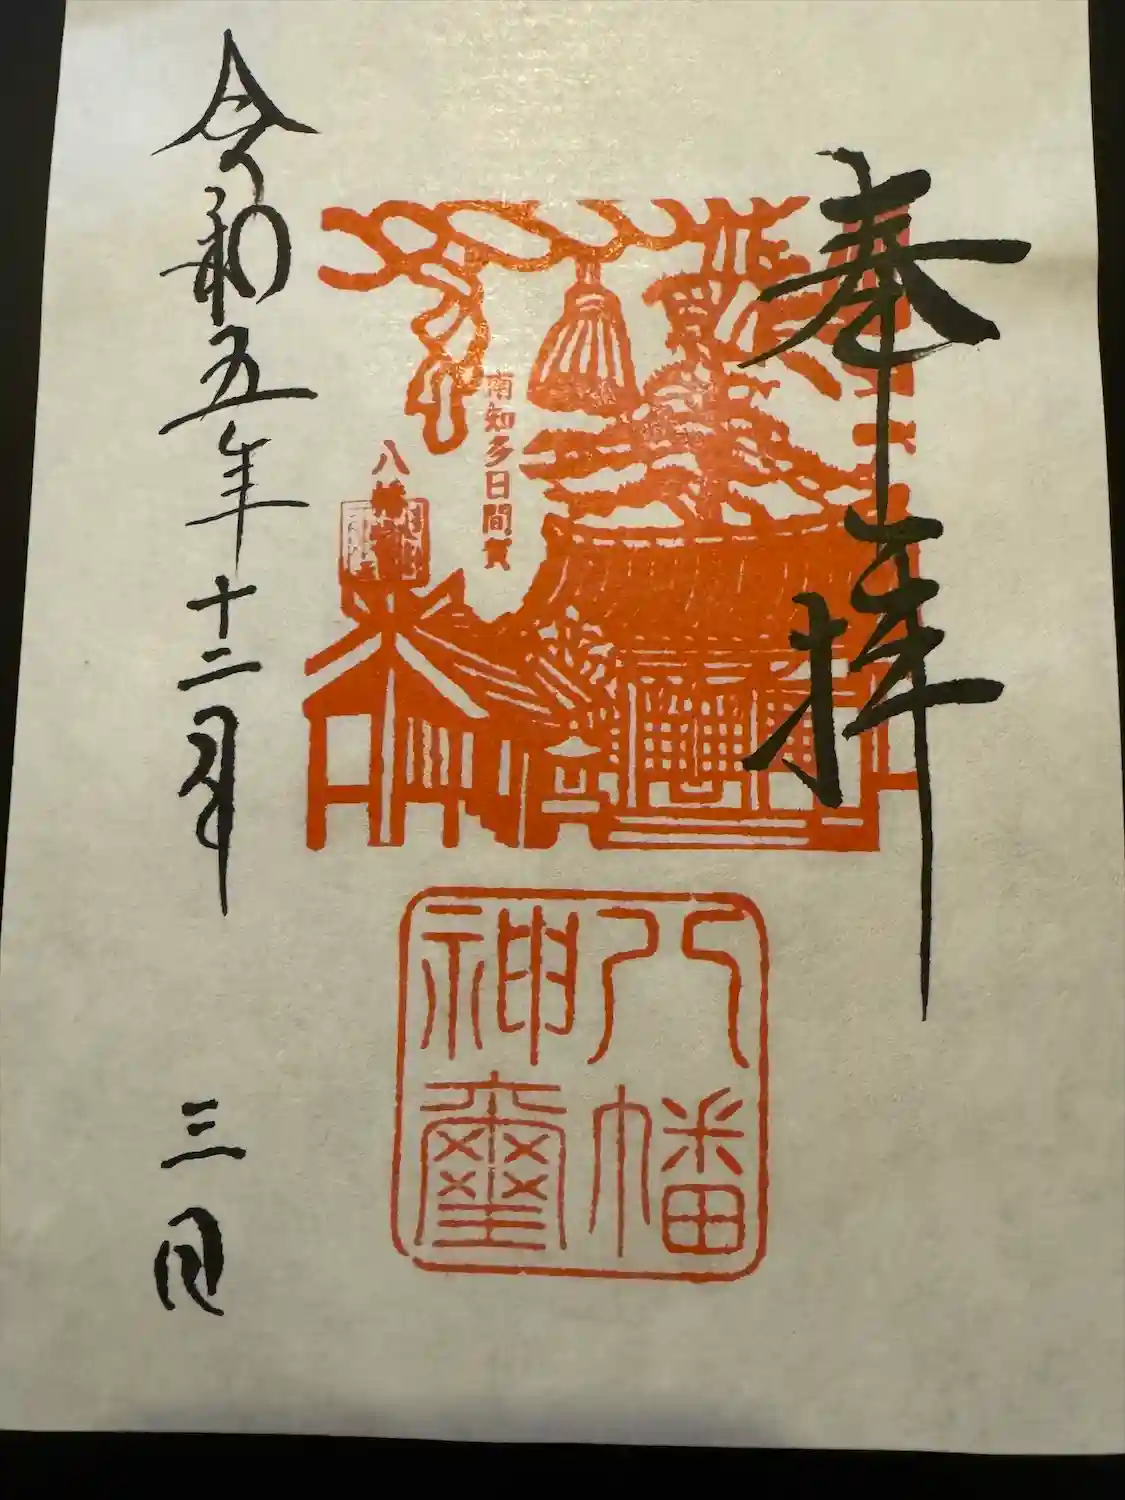 奉拝
南知多日間賀
八幡
八幡
神璽
令和五年十二月 三日